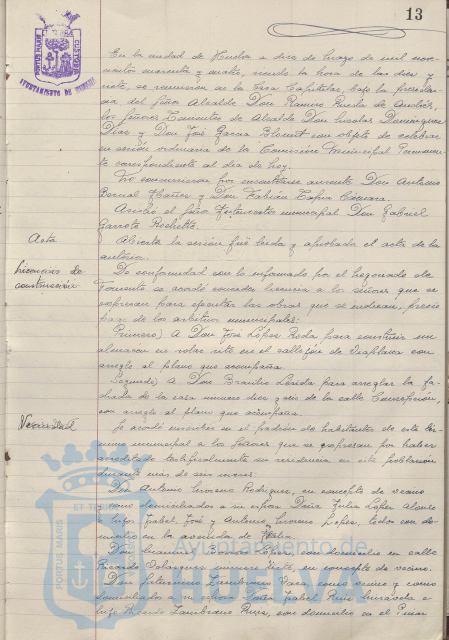 13
PORTUS MARIS
CUSTODIA
AYUNTAMIENTO DE HUELVA
En la ciudad de Huelva a doce de Mayo de mil nove-
cientos cuarenta y cuatro, siendo la hora de las diez y
se reunieron en la Casa Capitular, bajo la presiden-
cia del Señor Alcalde Don Ramiro
los Señores Tenientes de Alcalde Don Domínguez
Díaz y Don José García con objeto de celebrar
en sesión ordinaria de la Comisión Municipal Permanen-
te correspondiente al día de hoy.
No concurrieron por encontrarse ausente Don Antonio
Bernal Ibáñez y Don Fabián Tapia Cámara.
Asistió el Señor Interventor municipal Don Gabriel
Garrote
Acta
Abierta la sesión fué leida y aprobada el acta de la
anterior.
Licencias de
construcción
De conformidad con lo informado por el Negociado de
Fomento se acordó conceder licencia a los señores que se
expresan para ejecutar las obras que se indican, previo
pago de los arbitrios municipales:
Primero) A Don José López Roda para construir un
almacén en solar sito en el callejón de con
arreglo al plano que acompaña.
Segundo) A Don Braulio para arreglar la fa-
chada de la casa número diez y seis de la calle Concepción,
con arreglo al plano que acompaña.
Vecindad
Se acordó inscribir en el padrón de habitantes de este tér-
mino municipal a los señores que se expresan por haber
acreditado testificalmente su residencia en esta población
durante más de seis meses:
Don Antonio Moreno Rodríguez, en concepto de vecino
y como domiciliados a su esposa Doña Julia López Alonso
e hijos Isabel, José y Antonio Moreno López, todos con do-
micilio en la avenida de Italia
Don López con domicilio en calle
Ricardo Velázquez número siete, en concepto de vecino.
Don Zambrano Vaca, como vecino y como
domiciliados a su esposa Doña Isabel Ruiz e
hijo Zambrano Ruiz, con domicilio en el
Ayuntamiento de
HUELVA